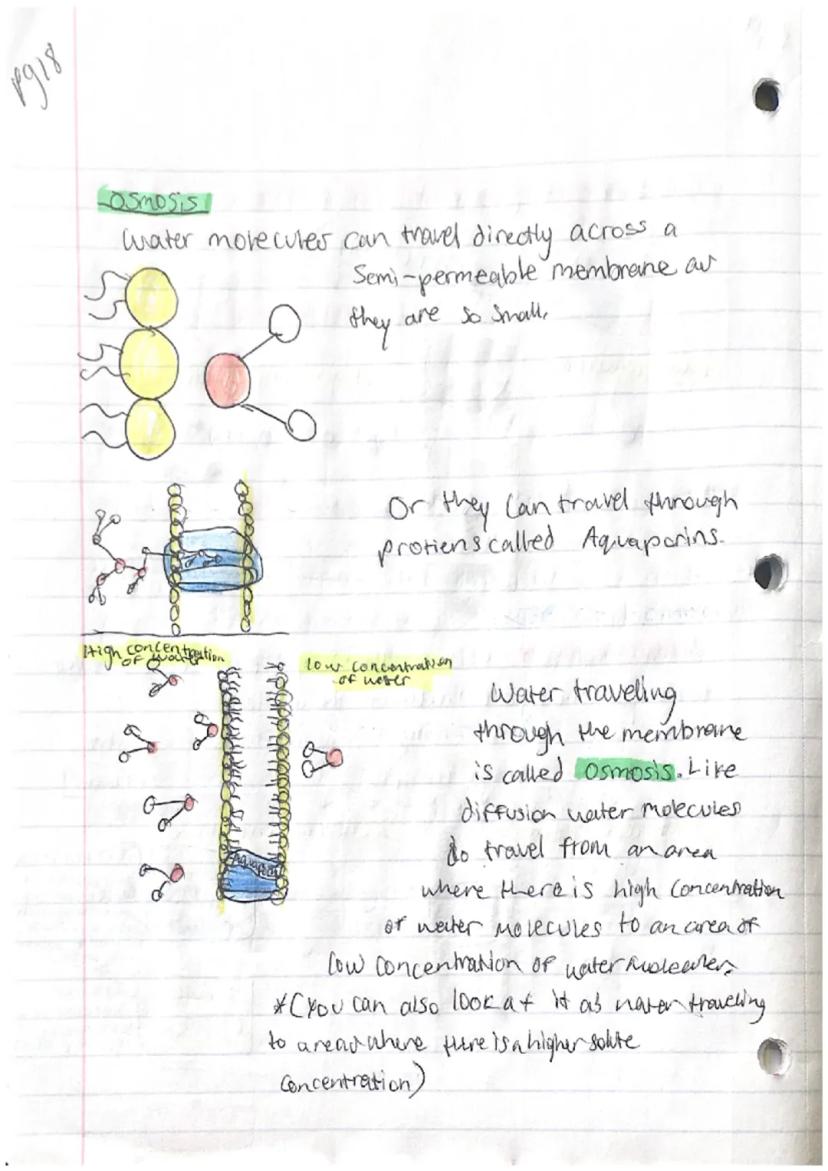 pg18
Osmosis
Water molecules can travel directly across a
Semi-permeable membrane as
they are so small.
Or they can travel through
protiens called Aquaporins.
High concentration
of water
low concentration
of water
Water traveling
through the membrane
is called Osmosis. Like
diffusion water molecules
do travel from an area
where there is high concentration
of water molecules to an area of
low concentration of water molecules.
*(you can also look at it as water traveling
to areas where there is a higher solute
concentration)